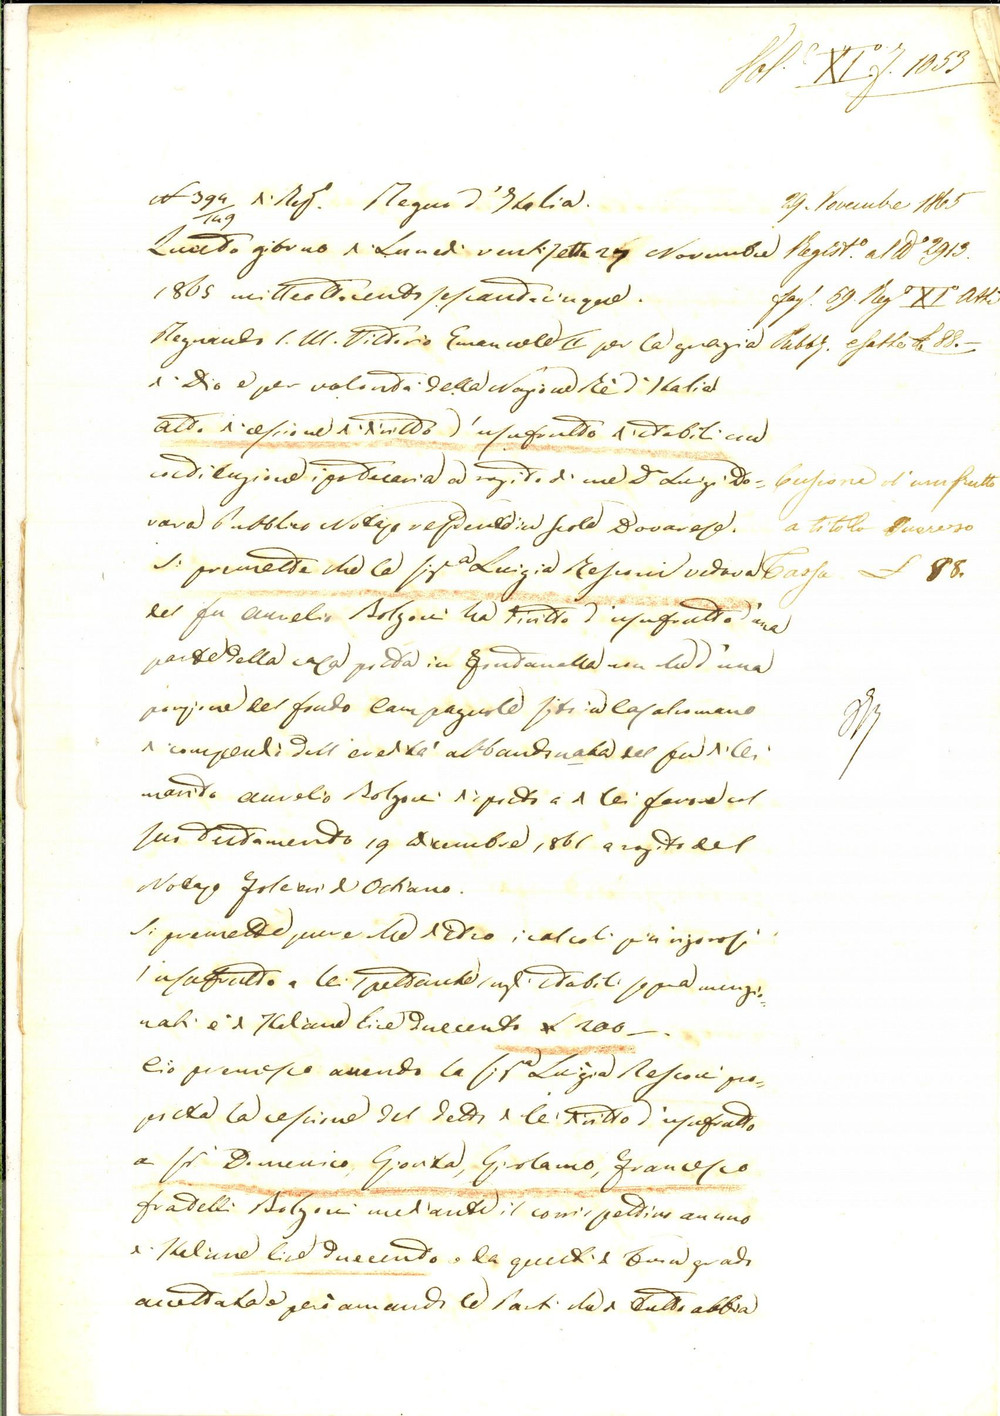 Vol.e XI.o f. 1053
N 394 di Rep.o Regno d'Italia.
149
Questo giorno di Lunedi ventisette 27 Novembre
1865 milleottocentosessantacinque.
Regnando S. M. Vittorio Emanuele II per la grazia
di Dio e per volontà della Nazione Rè d'Italia
Atto di cessione di diritto d'usufrutto di stabili con
costituzione ipotecaria a rogito di me D.r Luigi Do-
vara Pubblico Notajo residente in Isola Dovarese.
Si premette che la sig.a Luigia Resconi vedova
del fu Aurelio Bolzoni ha diritto d'usufrutto d'una
parte della casa posta in Fontanella non che d'una
porzione del fondo Campagnole sito in Casalromano
di compendio dell'eredità abbandonata dal fu di lei
marito Aurelio Bolzoni disposto a di lei favore col
suo testamento 19 Dicembre 1861 a rogito del
Notajo di Ostiano.
Si premette pure che dietro i calcoli più rigorosi
l'usufrutto a lei spettante sugli stabili sopra menzio-
nati è di Italiane lire duecento £ 200 —.
Ciò premesso avendo la sig.a Luigia Resconi pro-
posta la cessione del detto di lei diritto d'usufrutto
a sig.i Domenico, Giovita, Girolamo, Francesco
fratelli Bolzoni mediante il corrispettivo annuo
di Italiane lire duecento e da questi di buon grado
accettata e però amando le Parti che di tutto abbia
29. Novembre 1865
Regist.o al N.o 2913.
fog. 59 Reg.o XI.o Atti
Pubb. esatte £ 88.—
Cessione d'usufrutto
a titolo oneroso
Tassa £ 88.